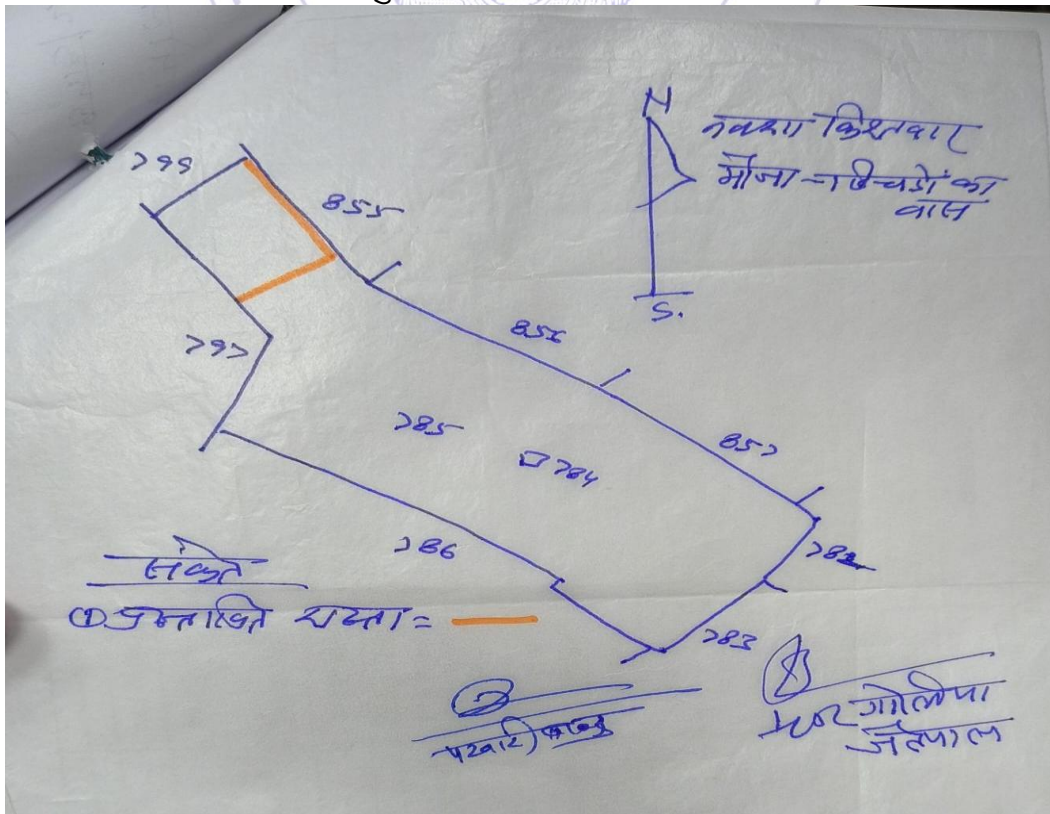 N
नक्शा किश्तवार
मौजा - खिचडों का
वास
S.
799
855
797
856
785
784
857
786
782
783
संकेत
① प्रस्तावित रास्ता =
पटवारी
गोलीया
जैतमाल